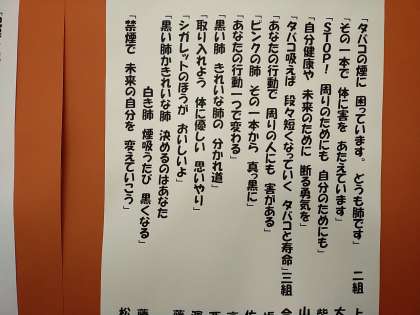 「タバコの煙に 困っています。 どうも肺です」 二組 上
「その一本で 体に害を あたえています」 大
「STOP! 周りのためにも 自分のためにも」 柴
「自分健康や 未来のために 断る勇気を」 山
「タバコ吸えば 段々短くなっていく タバコと寿命」三組 今
「あなたの行動で 周りの人にも 害がある」
「ピンクの肺 その一本から 真っ黒に」 佐
「あなたの行動一つで変わる」
黒い肺 きれいな肺の 分かれ道」 西
「取り入れよう 体に優しい 思いやり」
「シガレットのほうが おいしいよ」
「黒い肺かきれいな肺 決めるのはあなた
白き肺 煙吸うたび 黒くなる」 藤
「禁煙で 未来の自分を 変えていこう」 松